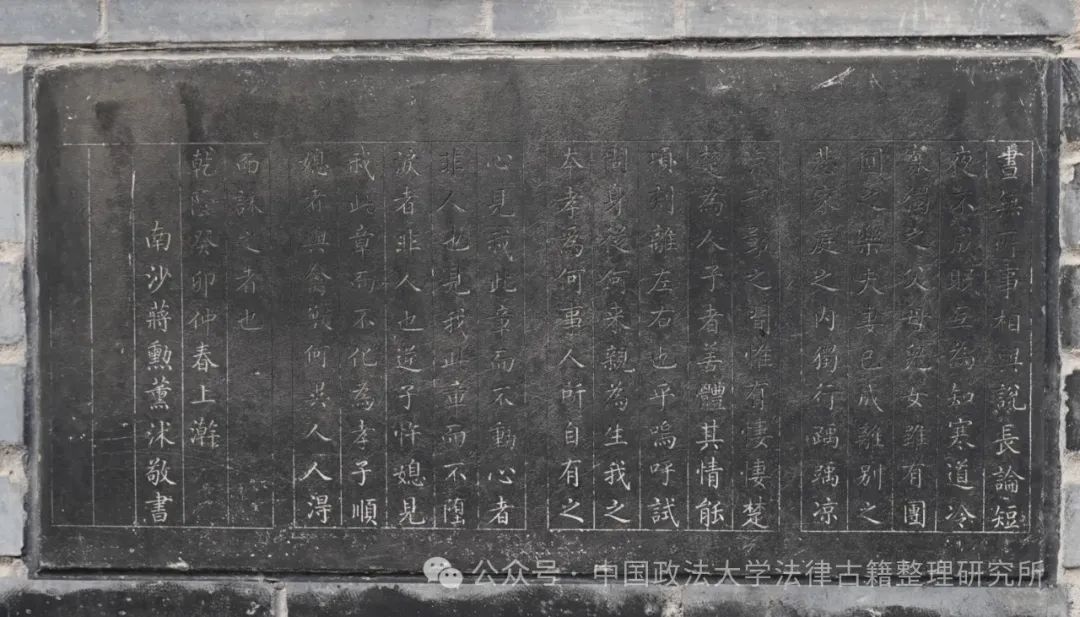 晝無所事相與說長論短
夜不成眠互為知寒道冷
獨之父母兒女雖有團
之樂夫妻已成離別之
悲家庭之內獨行踽踽凉
之宵惟有悽悽楚
楚為人子者善體其情能
頃刻離左右也乎嗚呼試
問身從何來親為生我之
本孝為何事人所自有之
心見我此章而不動心者
非人也見我此章而不墮
淚者非人也逆子忤媳見
我此章而不化為孝子順
媳者與禽獸何異人人得
而誅之者也
乾隆癸卯仲春上澣
南沙蔣勳薰沐敬書
公众号 · 中国政法大学法律古籍整理研究所